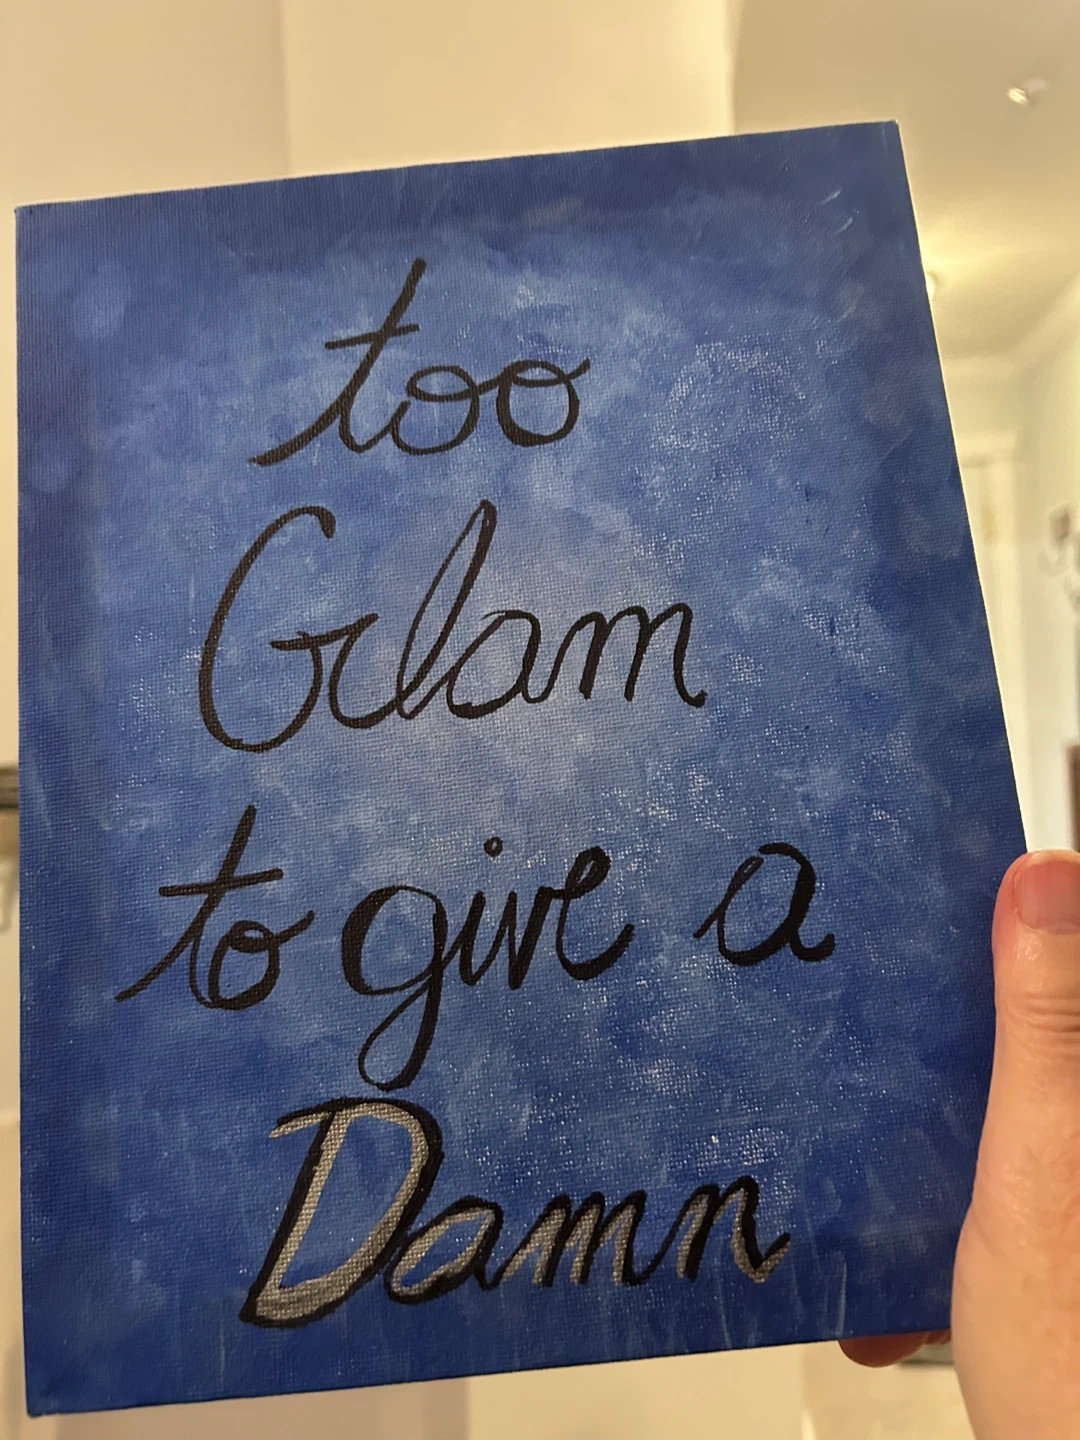 too
Glam
to give a
Damn